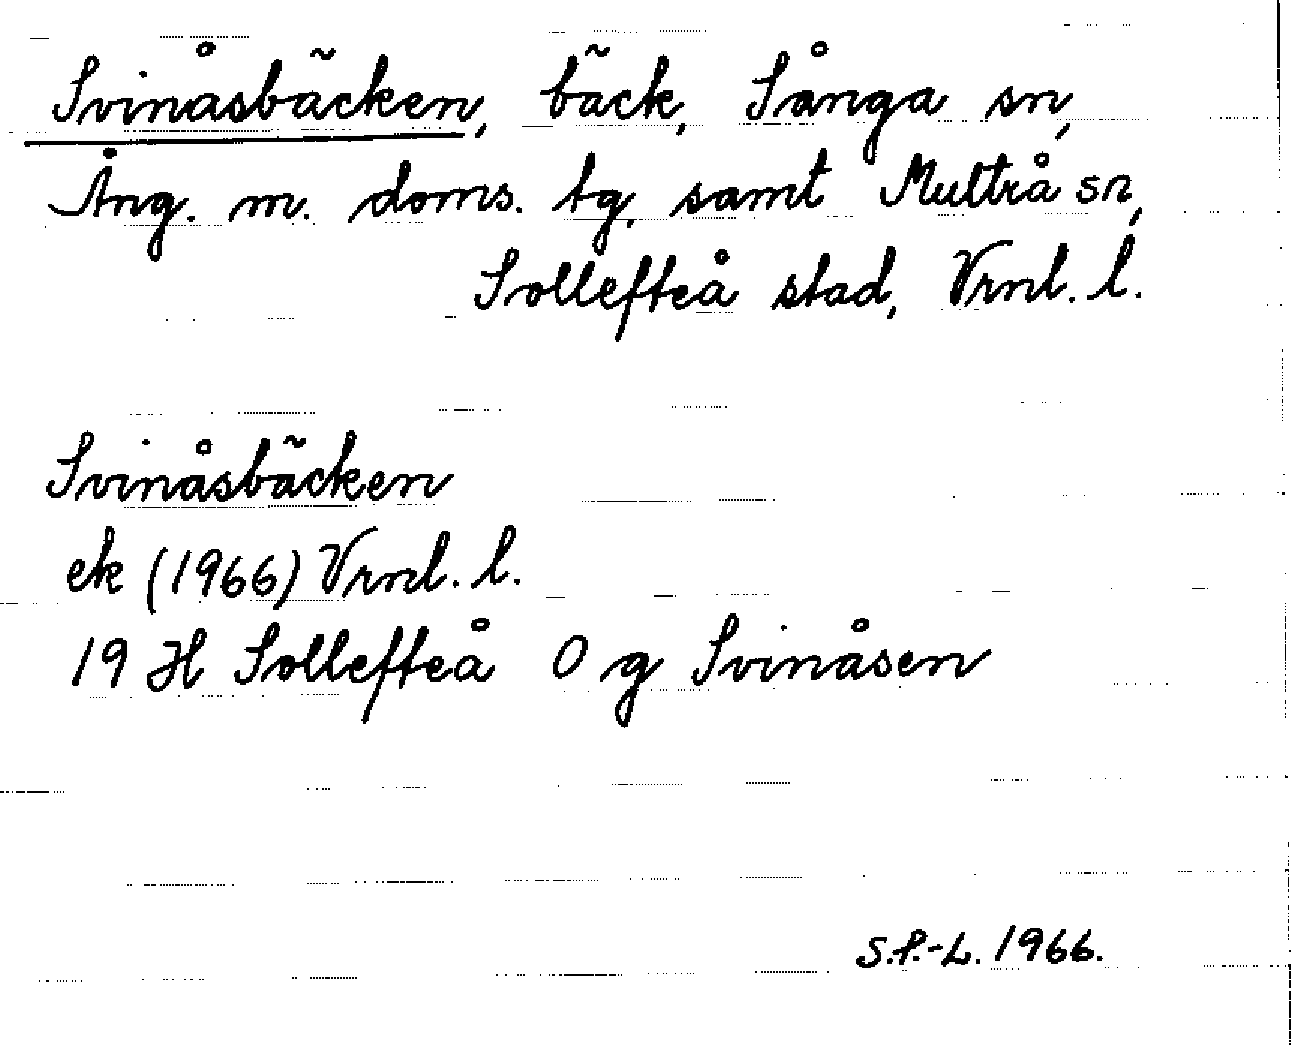 Svinåsbäcken, bäck, Sånga sn,
Ång. m. doms. tg. samt Multrå sn,
Sollefteå stad, Vrnl. l.
Svinåsbäcken
ek (1966) Vrnl. l.
19 H Sollefteå O g Svinåsen
S.P.-L. 1966.